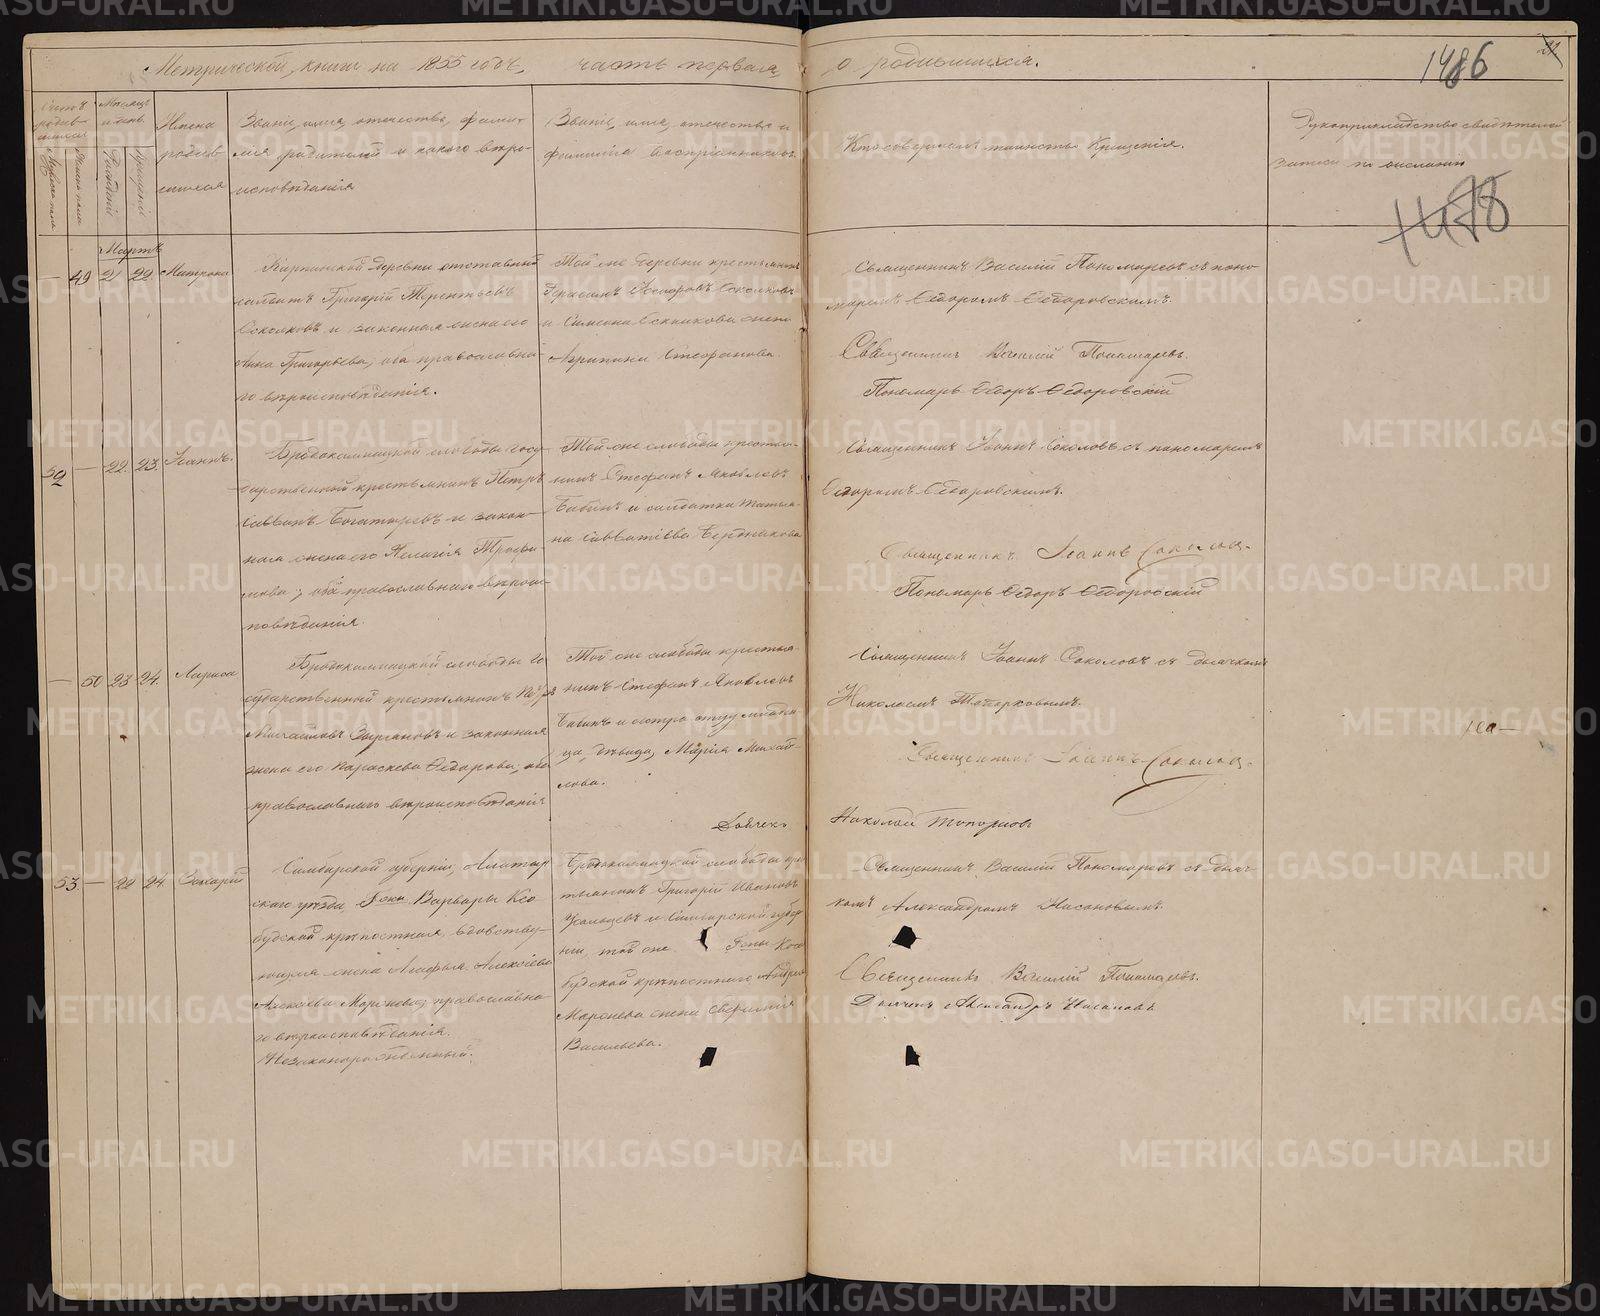 Метрической книги на 1855 годъ, часть первая, о родившихся.
1486
Счетъ родившихся
Мѣсяцъ и день
Имена родившихся
Званіе, имя, отечество, фамилія родителей и какого вѣроисповѣданія
Званіе, имя, отечество и фамилія воспріемниковъ.
Кто совершалъ таинство Крещенія.
Рукоприкладство свидѣтелей записи по желанію
Мужеска пола
Женска пола
Рожденія
Крещенія
Мартъ
— 49 21 22. Матрона
деревни отставный
солдатъ Григорій Терентьевъ
Соколковъ и законная жена его
Анна Григорьева, оба православна-
го вѣроисповѣданія.
Той же деревни крестьянинъ
Герасимъ Соколковъ
и Симеона жена
Агрипина Стефанова.
Священникъ Василій Пономаревъ съ поно-
маремъ Ѳедоромъ Ѳедоровскимъ.
Священникъ Василій Пономаревъ.
Пономарь Ѳедоръ Ѳедоровскій
52 — 22. 23. Іоаннъ.
Бродокалмацкой слободы госу-
дарственный крестьянинъ Петръ
Саввинъ Богатыревъ и закон-
ная жена его Пелагія Трофи-
мова; оба православнаго вѣроис-
повѣданія.
Той же слободы крестья-
нинъ Стефанъ Яковлевъ
Бабинъ и солдатка Татья-
на Савватіева Бердникова
Священникъ Іоаннъ Соколовъ съ пономаремъ
Ѳедоромъ Ѳедоровскимъ.
Священникъ Іоаннъ Соколовъ.
Пономарь Ѳедоръ Ѳедоровскій
— 50 23 24. Лариса
Бродокалмацкой слободы го-
сударственный крестьянинъ Петръ
Михайловъ и законная
жена его Параскева Ѳедорова, оба
православнаго вѣроисповѣданія
Той же слободы крестья-
нинъ Стефанъ Яковлевъ
Бабинъ и сестра отцу младен-
ца, дѣвица, Марія Михай-
лова.
Священникъ Іоаннъ Соколовъ съ дьячкомъ
Николаемъ Топорковымъ.
Священникъ Іоаннъ Соколовъ.
Дьячекъ Николай Топорковъ
53 — 22 24. Захарій
Симбирской губерніи, Алатыр-
скаго уѣзда, Г-жи Варвары
крѣпостная, вдовству-
ющая жена Агафья Алексіева
православна-
го вѣроисповѣданія.
Незаконорожденный.
Бродокалмацкой слободы кре-
стьянинъ Григорій Ивановъ
Усольцевъ и Симбирской губер-
ніи, той же Г-жи
крѣпостнаго Андрея
жена
Васильева.
Священникъ Василій Пономаревъ съ дьяч-
комъ Александромъ Насоновымъ.
Священникъ Василій Пономаревъ.
Дьячекъ Александръ Насоновъ
METRIKI.GASO-URAL.RU